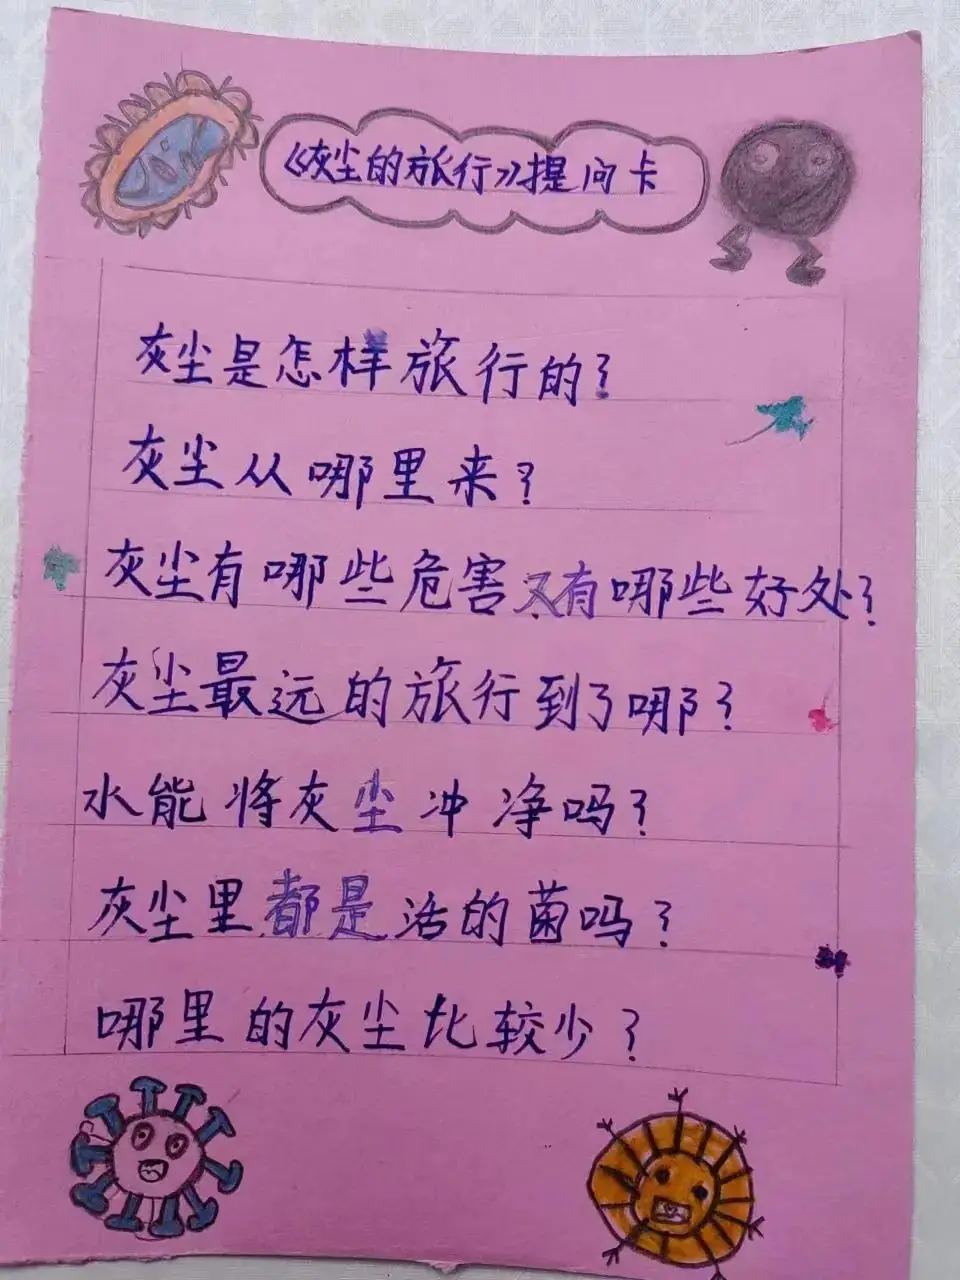 《灰尘的旅行》提问卡
灰尘是怎样旅行的?
灰尘从哪里来?
灰尘有哪些危害又有哪些好处?
灰尘最远的旅行到了哪?
水能将灰尘冲净吗?
灰尘里都是活的菌吗?
哪里的灰尘比较少?